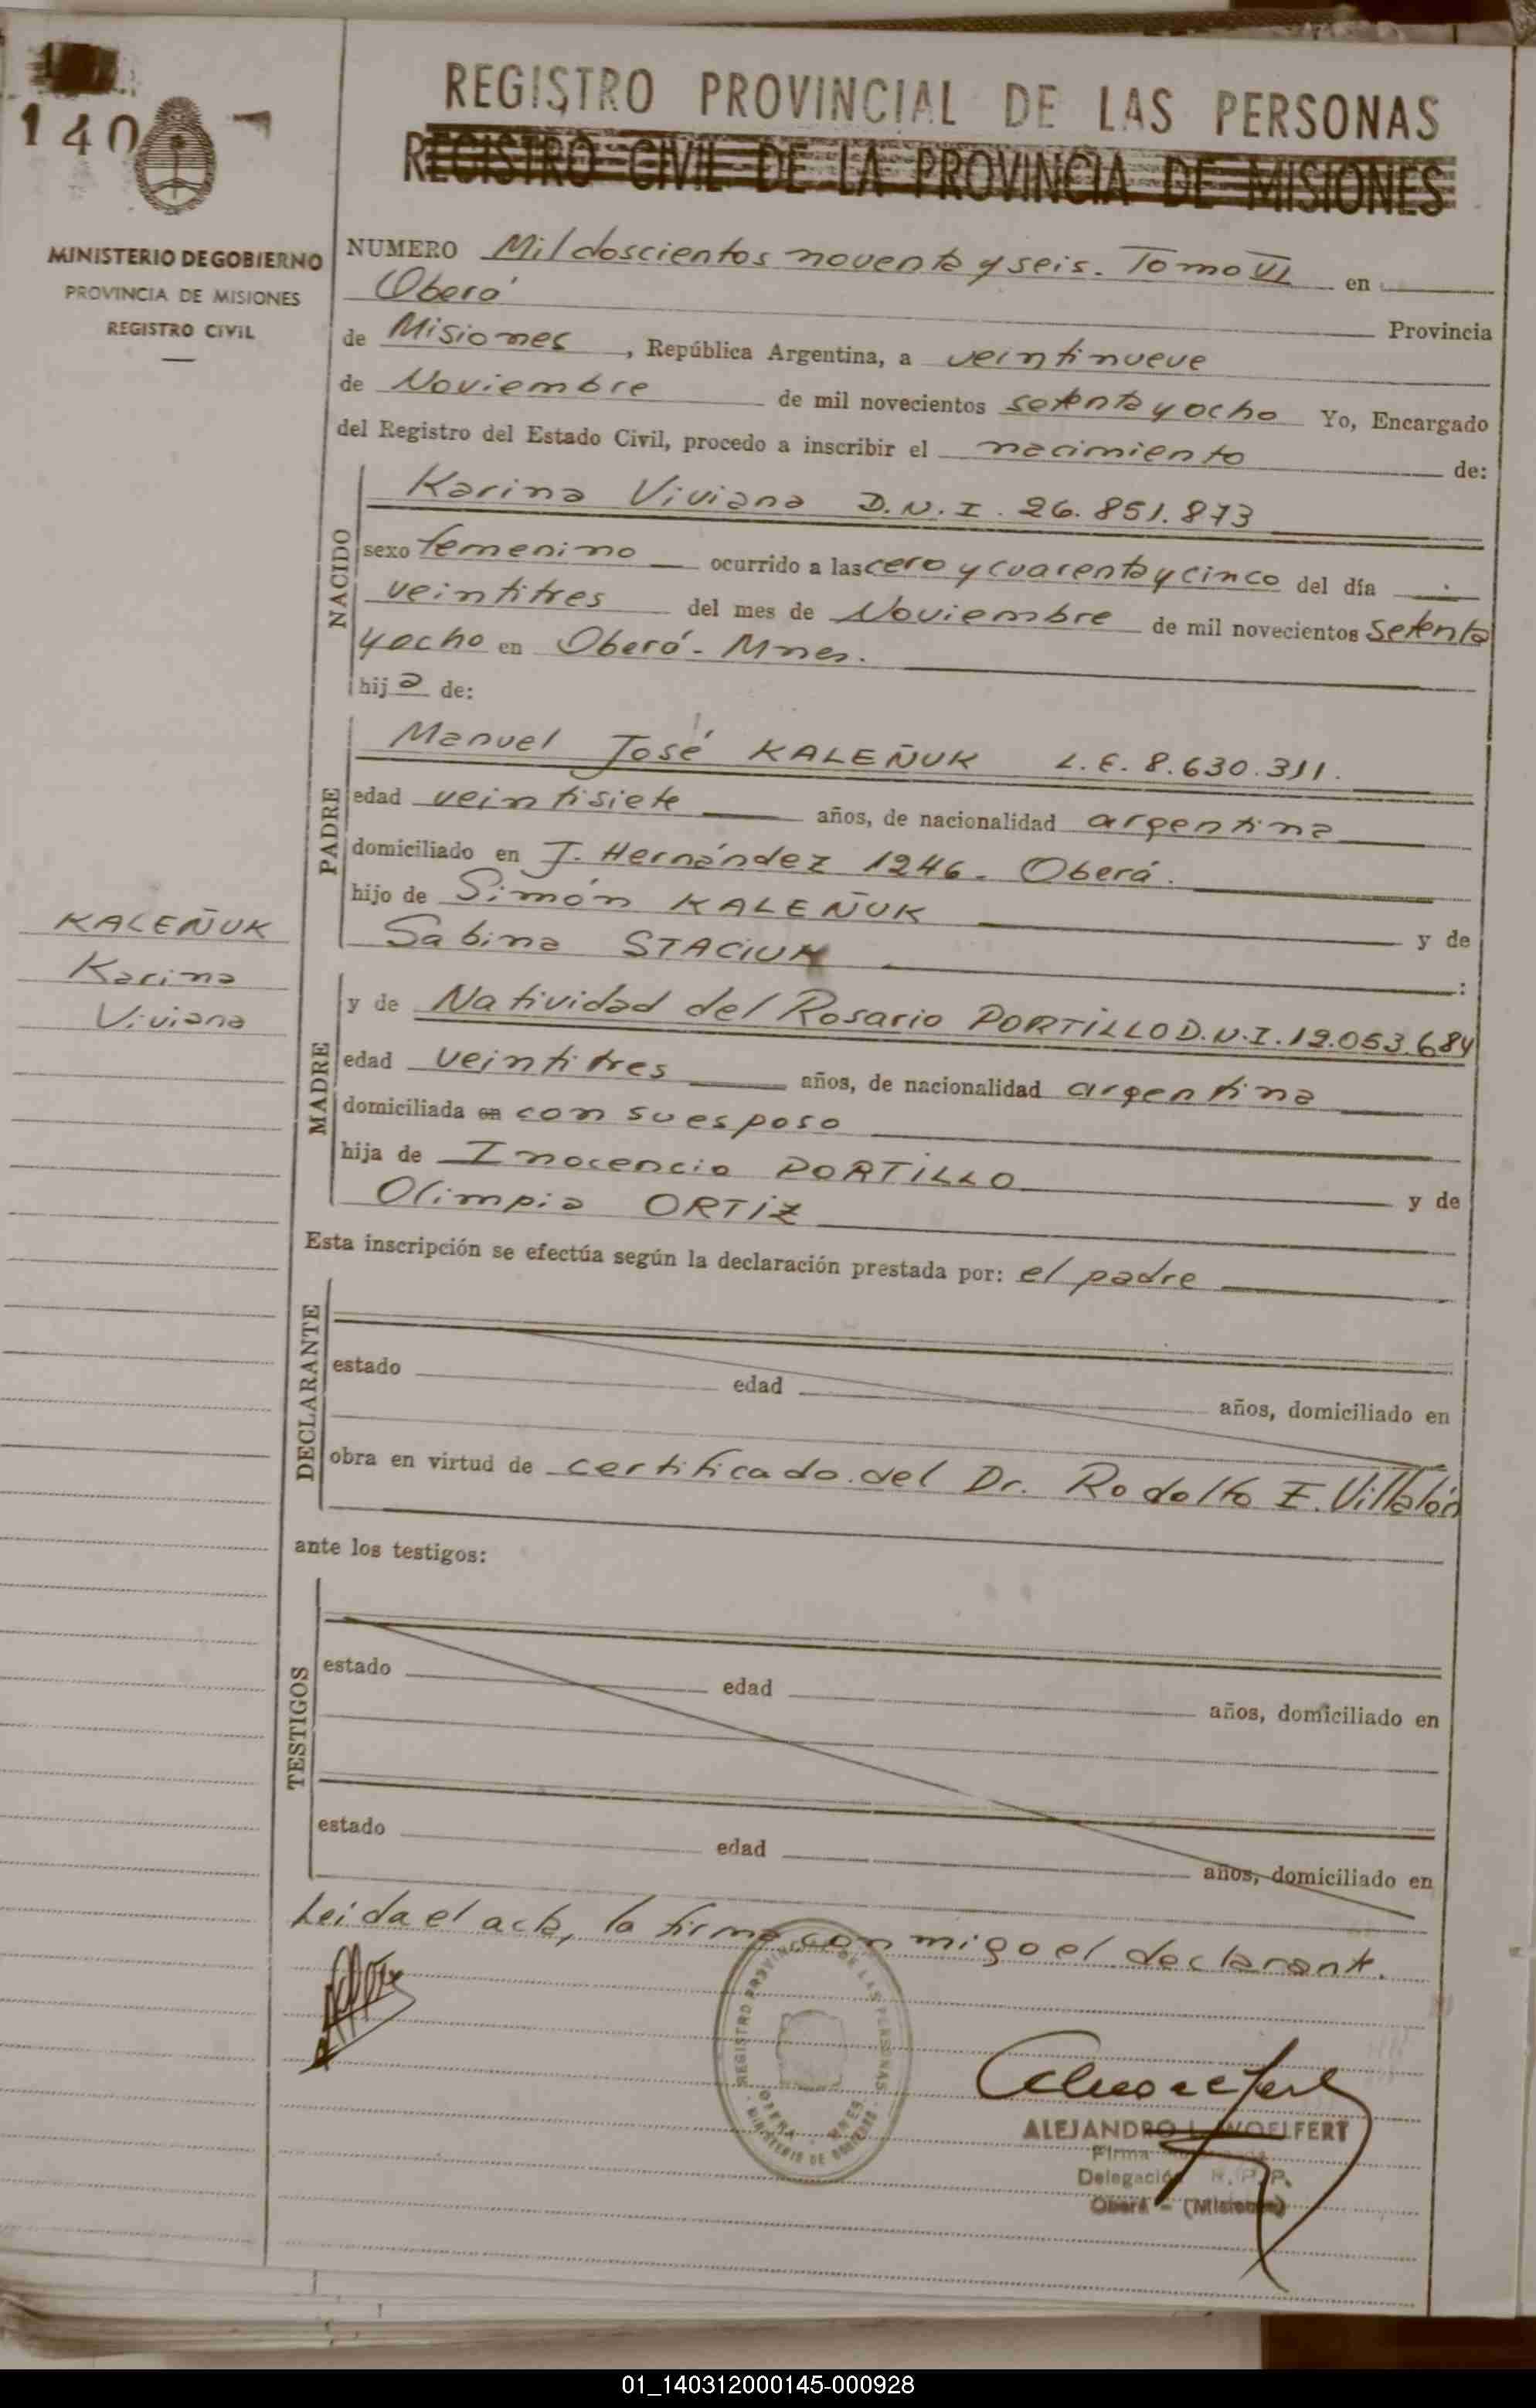 140
MINISTERIO DE GOBIERNO
PROVINCIA DE MISIONES
REGISTRO CIVIL
REGISTRO PROVINCIAL DE LAS PERSONAS
REGISTRO CIVIL DE LA PROVINCIA DE MISIONES
NUMERO Mil doscientos noventa y seis. Tomo VI en
Oberá Provincia
de Misiones, República Argentina, a veintinueve
de Noviembre de mil novecientos setenta y ocho Yo, Encargado
del Registro del Estado Civil, procedo a inscribir el nacimiento de:
NACIDO
Karina Viviana D.N.I. 26.851.873
sexo femenino ocurrido a las cero y cuarenta y cinco del día
veintitres del mes de Noviembre de mil novecientos setenta
y ocho en Oberá - Mnes.
hija de:
PADRE
Manuel José KALEÑUK L.E. 8.630.311.
edad veintisiete años, de nacionalidad argentina
domiciliado en J. Hernández 1246 - Oberá.
hijo de Simón KALEÑUK
y de
Sabina STACIUK :
KALEÑUK
Karina
Viviana
MADRE
y de Natividad del Rosario PORTILLO D.N.I. 12.053.684
edad veintitres años, de nacionalidad argentina
domiciliada en con su esposo
hija de Inocencio PORTILLO
y de
Olimpia ORTIZ
Esta inscripción se efectúa según la declaración prestada por: el padre
DECLARANTE
estado edad años, domiciliado en
obra en virtud de certificado del Dr. Rodolfo E. Villalón
ante los testigos:
TESTIGOS
estado edad años, domiciliado en
estado edad años, domiciliado en
Leida el acta, la firma conmigo el declarante.
REGISTRO PROVINCIAL DE LAS PERSONAS
OBERA - MNES
MINISTERIO DE GOBIERNO
ALEJANDRO L. WOELFERT
Firma
Delegación R.P.P.
Oberá - (Misiones)
01_140312000145-000928